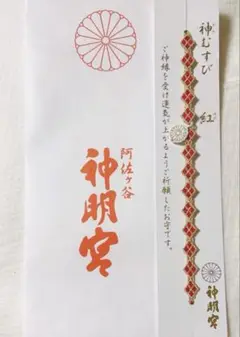 阿佐ヶ谷
神明宮
神むすび
紅
ご神縁を受け運気が上がるようご祈願したお守です。
神明宮